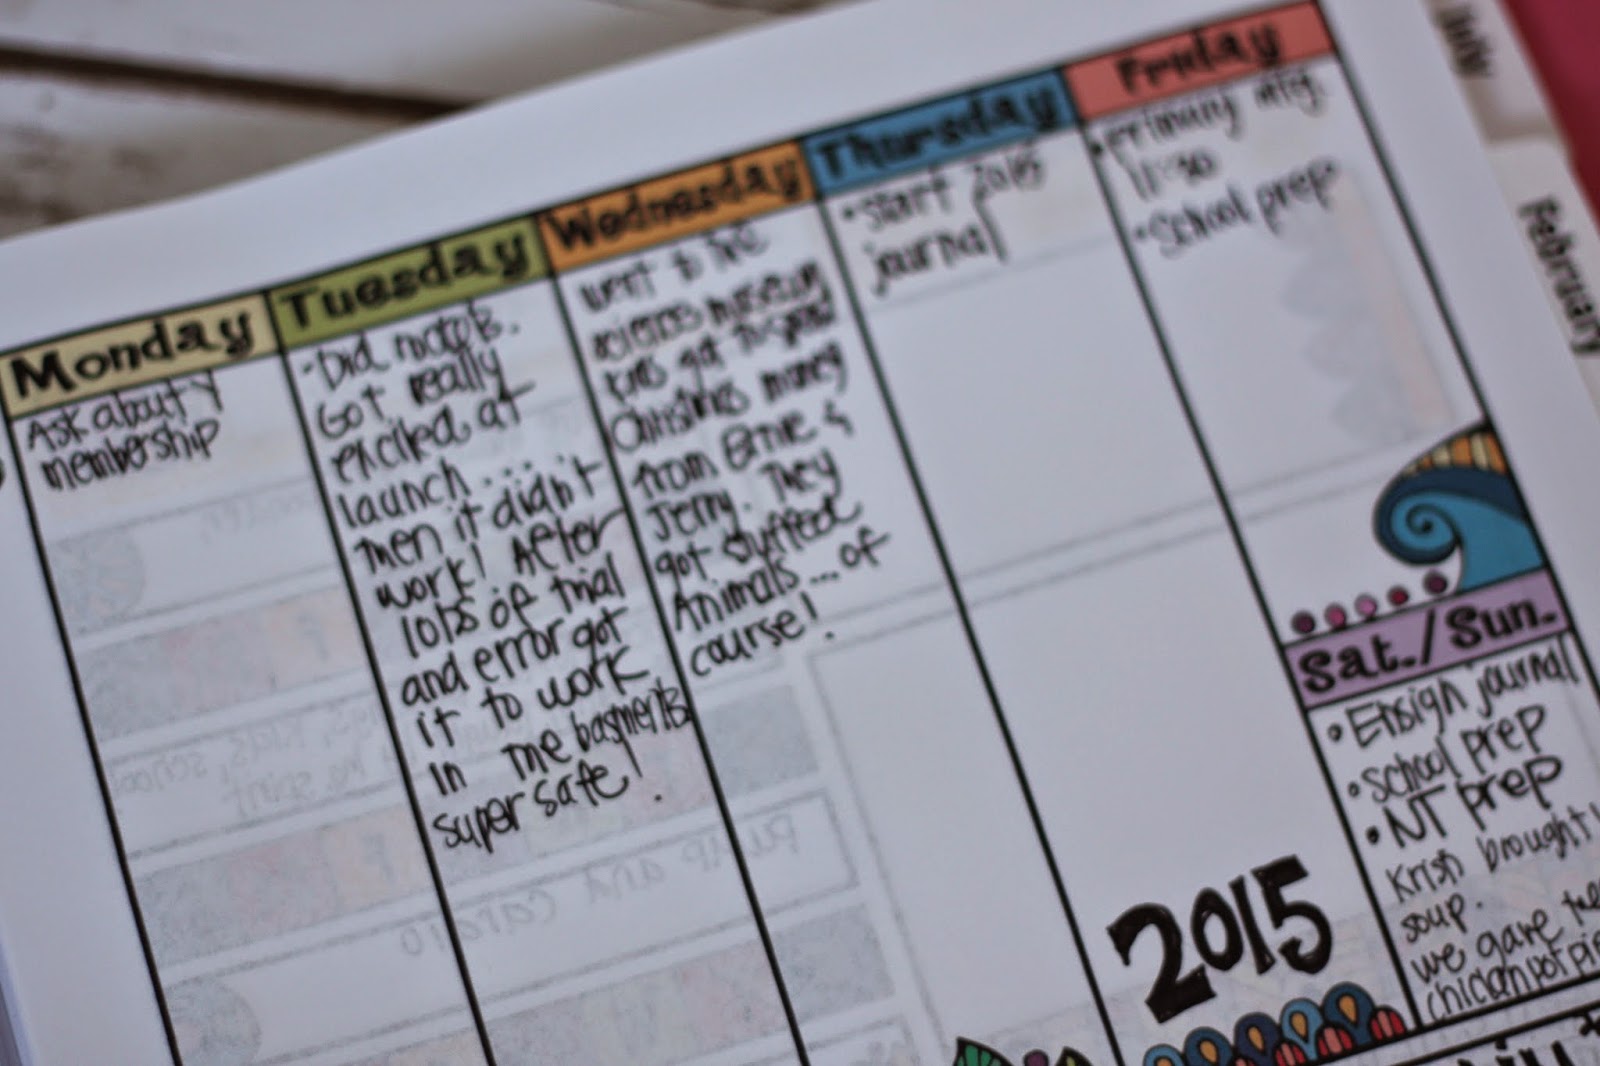 Monday
Ask about Y
membership
Tuesday
·Did
Got really
excited at
launch...
then it didn't
work! After
lots of trial
and error got
it to work
in the basment
super safe!
Wednesday
went to the
sciences museum
kids got to spend
Christmas money
from Ernie &
Jerry. They
got stuffed
Animals... of
course!
Thursday
•start 2015
journal
Friday
•Primary mtg.
11:30
•School prep
Sat./Sun.
•Ensign journal
•School prep
•NT prep
Krish brought
soup.
we gave
chickenpot pie
2015
July
February